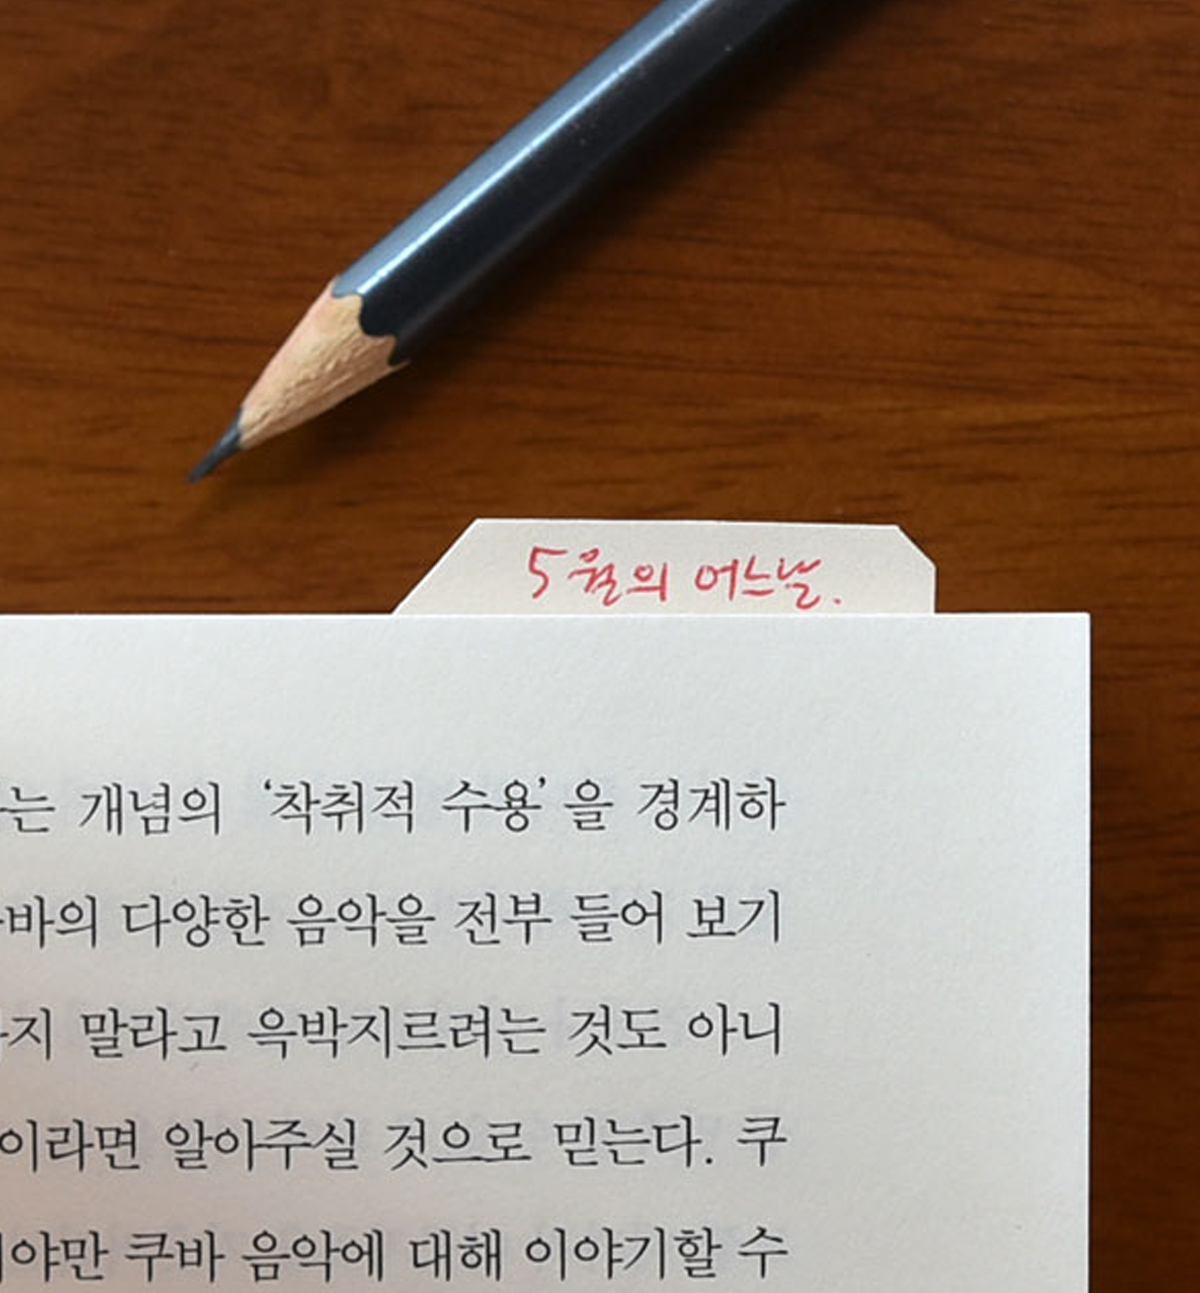 5월의 어느날.
는 개념의 ‘착취적 수용’을 경계하
바의 다양한 음악을 전부 들어 보기
지 말라고 윽박지르려는 것도 아니
이라면 알아주실 것으로 믿는다. 쿠
야만 쿠바 음악에 대해 이야기할 수